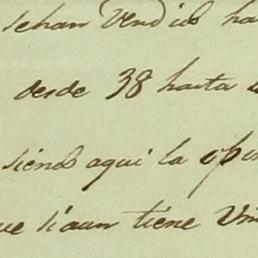 sehan Vendido ha
desde 38 hasta
siendo aqui la opin
ue si aun tiene Vm